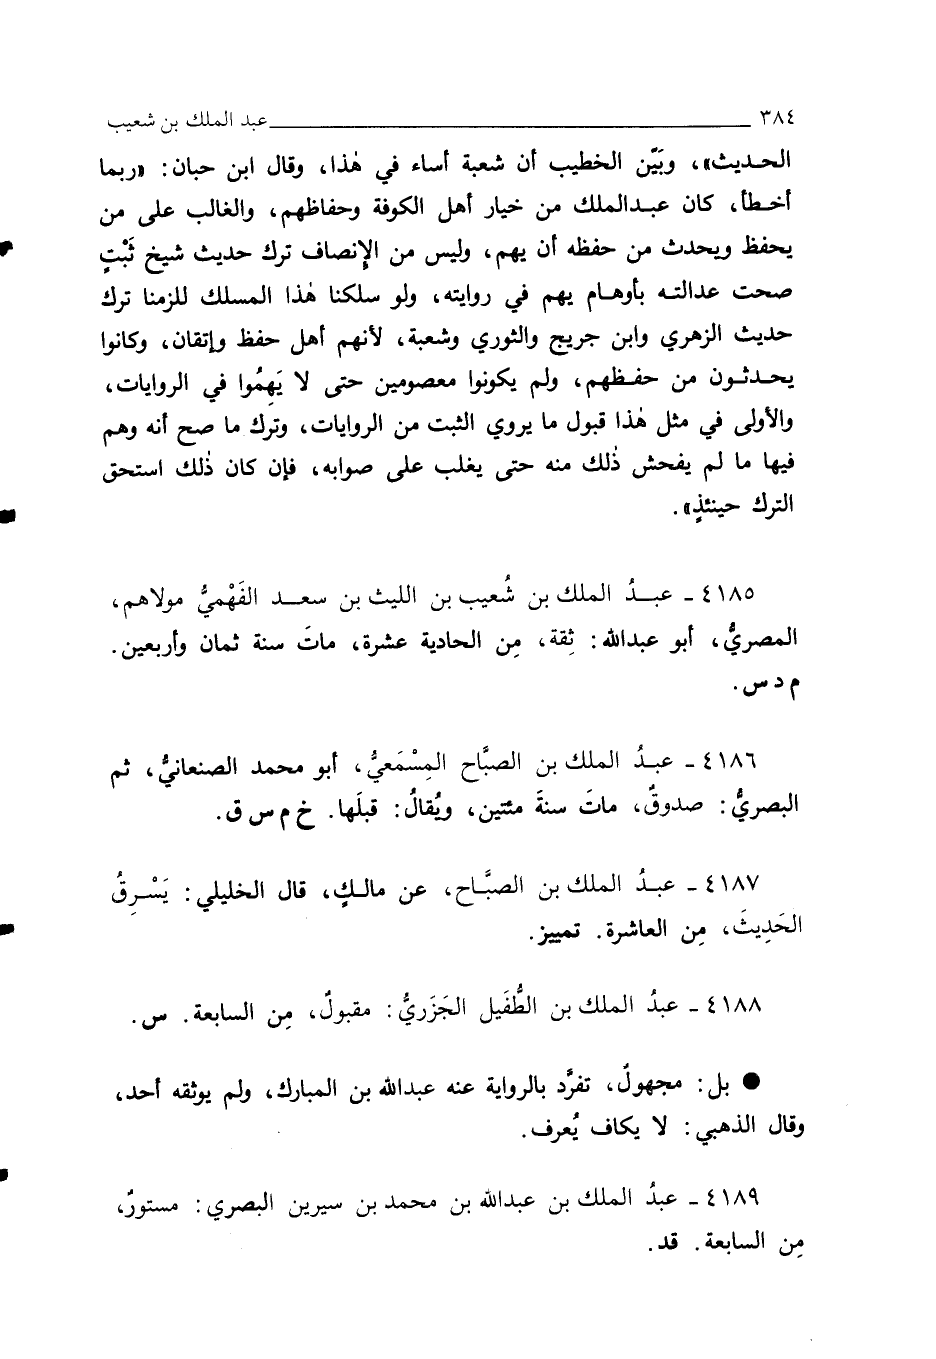 ٣٨٤ عبد الملك بن شعيب
الحديث»، وبَيَّن الخطيب أن شعبة أساء في هٰذا، وقال ابن حبان: «ربما
أخطأ، كان عبدالملك من خيار أهل الكوفة وحفاظهم، والغالب على من
يحفظ ويحدث من حفظه أن يهم، وليس من الإنصاف ترك حديث شيخ ثَبْتٍ
صحت عدالته بأوهام يهم في روايته، ولو سلكنا هٰذا المسلك للزمنا ترك
حديث الزهري وابن جريج والثوري وشعبة، لأنهم أهل حفظ وإتقان، وكانوا
يحدثون من حفظهم، ولم يكونوا معصومين حتى لا يَهِمُوا في الروايات،
والأولى في مثل هٰذا قبول ما يروي الثبت من الروايات، وترك ما صح أنه وهم
فيها ما لم يفحش ذٰلك منه حتى يغلب على صوابه، فإن كان ذٰلك استحق
الترك حينئذٍ».
٤١٨٥ ـ عبدُ الملك بن شُعيب بن الليث بن سعد الفَهْميُّ مولاهم،
المصريُّ، أبو عبدالله: ثِقة، مِن الحادية عشرة، ماتَ سنة ثمان وأربعين.
م د س.
٤١٨٦ ـ عبدُ الملك بن الصبَّاح المِسْمَعيُّ، أبو محمد الصنعانيُّ، ثم
البصريُّ: صدوقٌ، ماتَ سنةَ مئتين، ويُقالُ: قبلَها. خ م س ق.
٤١٨٧ ـ عبدُ الملك بن الصبَّاح، عن مالكٍ، قال الخليلي: يَسْرِقُ
الحَدِيثَ، مِن العاشرة. تمييز.
٤١٨٨ ـ عبدُ الملك بن الطُّفَيل الجَزَريُّ: مقبولٌ، مِن السابعة. س.
● بل: مجهولٌ، تفرَّد بالرواية عنه عبدالله بن المبارك، ولم يوثقه أحد،
وقال الذهبي: لا يكاف يُعرف.
٤١٨٩ ـ عبدُ الملك بن عبدالله بن محمد بن سيرين البصري: مستورٌ،
مِن السابعة. قد.